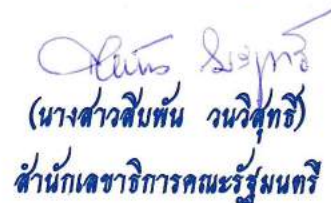 (นางสาวสืบพัน วนวิสุทธิ์)
สำนักเลขาธิการคณะรัฐมนตรี